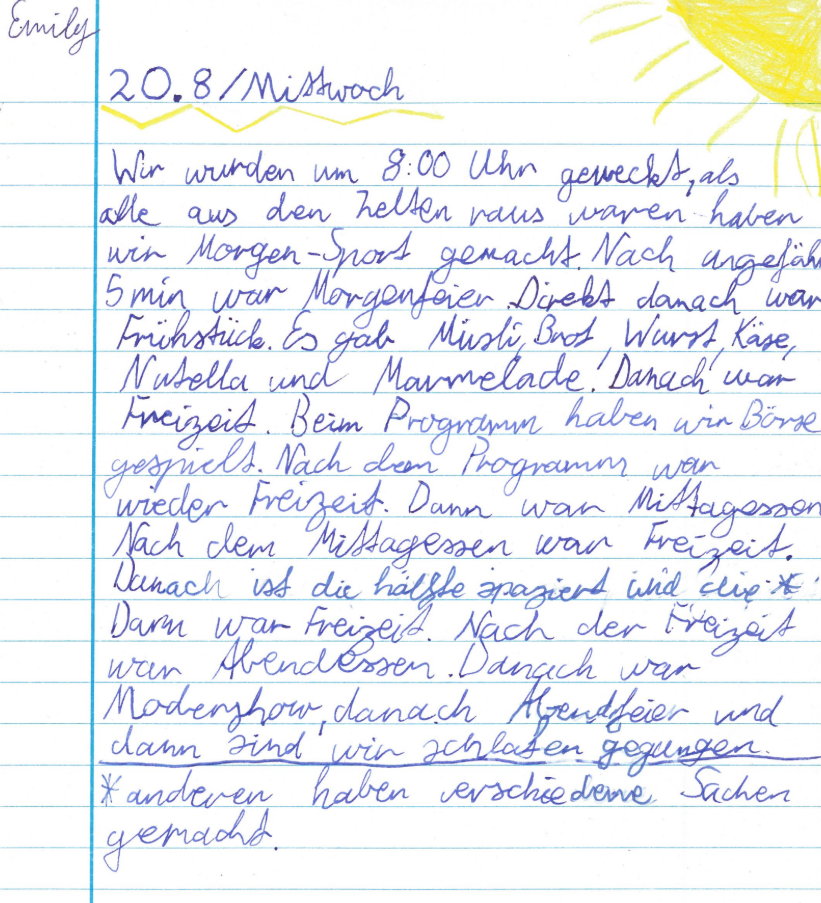 Emily
20.8/Mittwoch
Wir wurden um 8:00 Uhr geweckt, als
alle aus den Zelten raus waren haben
wir Morgen-Sport gemacht. Nach ungefäh
5min war Morgenfeier. Direkt danach war
Frühstück. Es gab Müsli, Brot, Wurst, Käse,
Nutella und Marmelade! Danach war
Freizeit. Beim Programm haben wir Börse
gespielt. Nach dem Programm war
wieder Freizeit. Dann war Mittagessen
Nach dem Mittagessen war Freizeit.
Danach ist die hälfte spaziert und die *
Dann war Freizeit. Nach der Freizeit
war Abendessen. Danach war
Modenshow, danach Abendfeier und
dann sind wir schlafen gegangen.
*anderen haben verschiedene Sachen
gemacht.